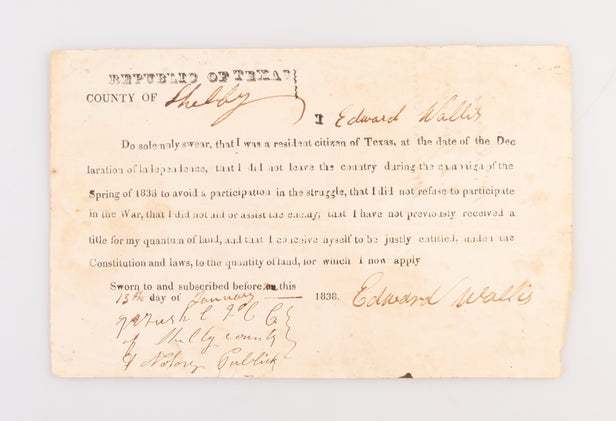 REPUBLIC OF TEXAS
COUNTY OF Shelby
I Edward Wallis
Do solemnly swear, that I was a resident citizen of Texas, at the date of the Dec
laration of Independence, that I did not leave the country during the campaign of the
Spring of 1836 to avoid a participation in the struggle, that I did not refuse to participate
in the War, that I did not aid or assist the enemy; that I have not previously received a
title for my quantum of land, and that I conceive myself to be justly entitled, under the
Constitution and laws, to the quantity of land, for which I now apply
Sworn to and subscribed before me this
13th day of January 1838. Edward Wallis
of Shelby county
& Notory Publick